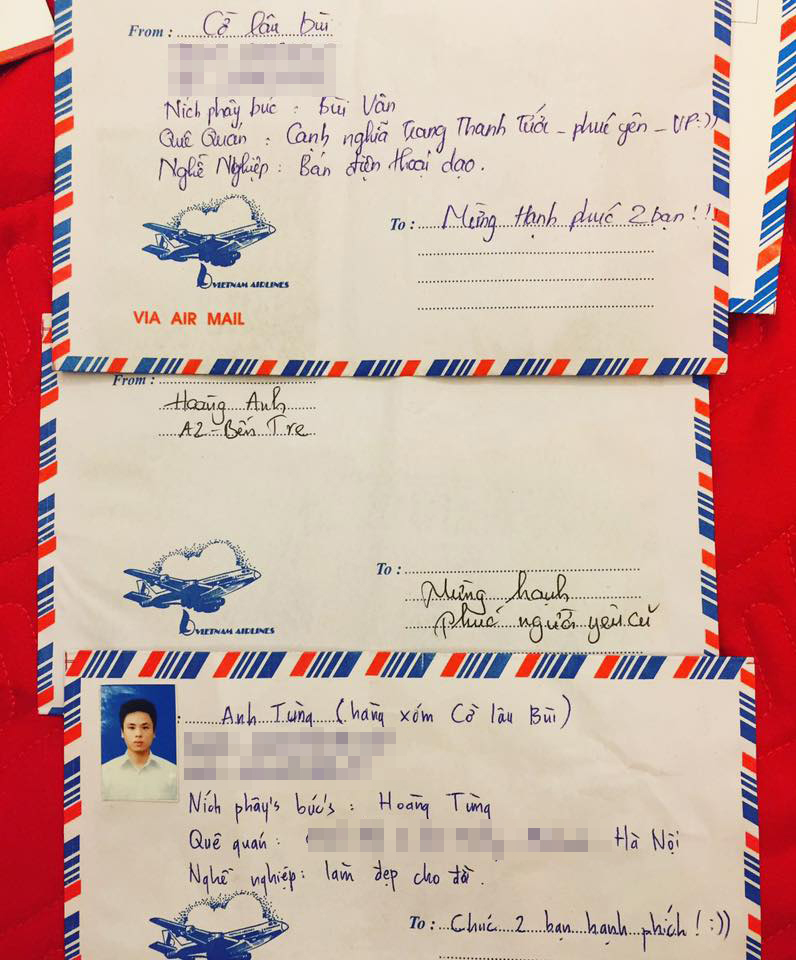 From : Cờ lâu bùi
Ních phây búc : Bùi Vân
Quê Quán : Cành nghĩa Trang Thanh Tước - phúc yên - VP:))
Nghề Nghiệp : Bán điện thoại dạo.
To : Mừng Hạnh phúc 2 bạn!!
VIETNAM AIRLINES
VIA AIR MAIL
From :
Hoàng Anh
A2-Bến Tre
To :
Mừng hạnh
phúc người yêu cũ
VIETNAM AIRLINES
: Anh Tùng (hàng xóm Cờ lâu Bùi)
Ních phây's búc's : Hoàng Tùng
Quê quán : Hà Nội
Nghề nghiệp: làm đẹp cho đời.
To : Chúc 2 bạn hạnh phích! :))